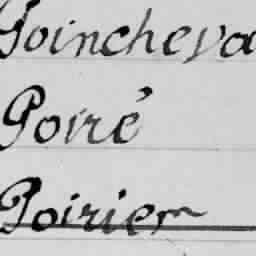 Poincheva
Poiré
Poirier